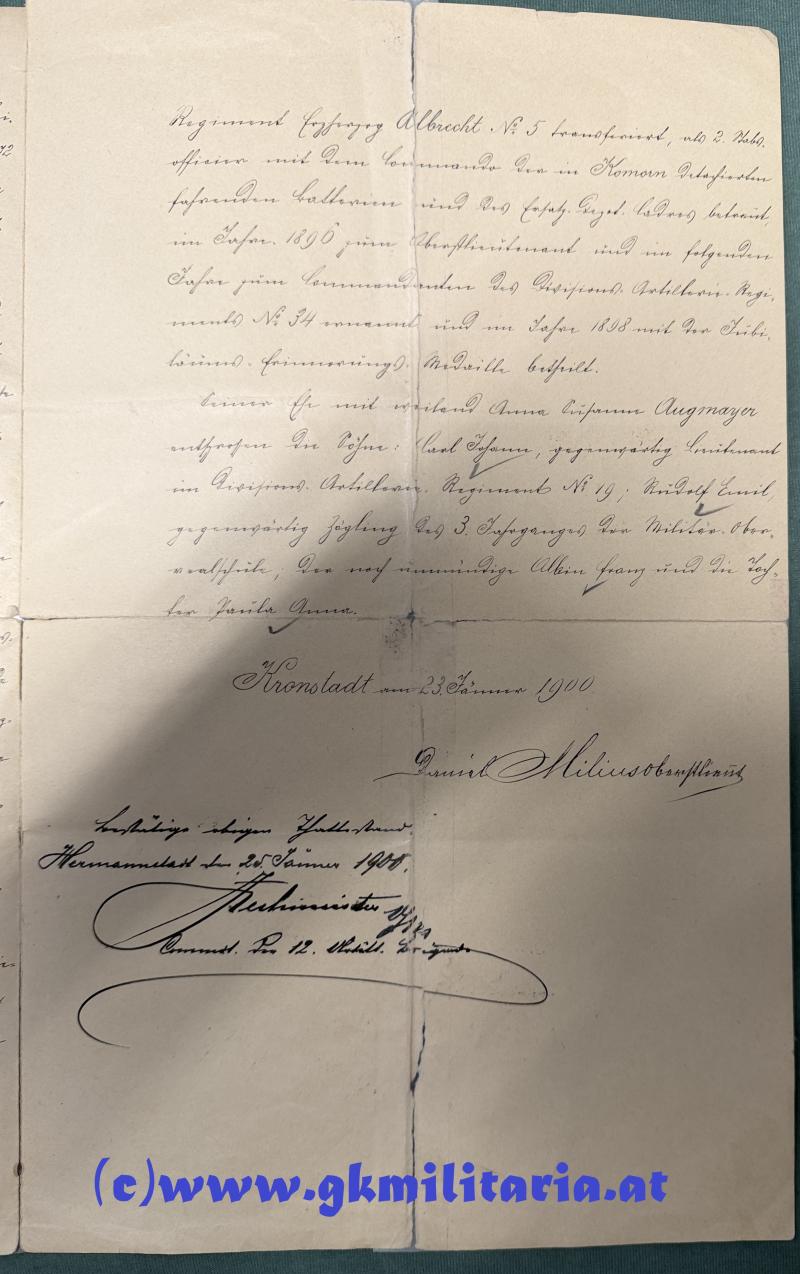 Regiment Erzherzog Albrecht No. 5 transferiert, als 2. Stabs-
officier mit dem Commando der in Komorn detachierten
fahrenden Batterien und des Ersatz-Depot-Cadres betraut,
im Jahre 1896 zum Oberstlieutenant und im folgenden
Jahre zum Commandanten des Divisions-Artillerie-Regi-
ments No. 34 ernannt und im Jahre 1898 mit der Jubi-
läums-Erinnerungs-Medaille betheilt.
Seiner Ehe mit weiland Anna Susanne Augmayer
entsprossen die Söhne: Carl Johann, gegenwärtig Lieutenant
im Divisions-Artillerie-Regiment No. 19; Rudolf Emil,
gegenwärtig Zögling des 3. Jahrganges der Militär-Ober-
realschule; der noch unmündige Albin Franz und die Toch-
ter Paula Anna.
Kronstadt am 23. Jänner 1900
Daniel Milius Oberstlieut
Bestätige obigen Thatbestand.
Hermannstadt den 25. Jänner 1900.
Commdt. der 12. Artill. Brigade
(c)www.gkmilitaria.at